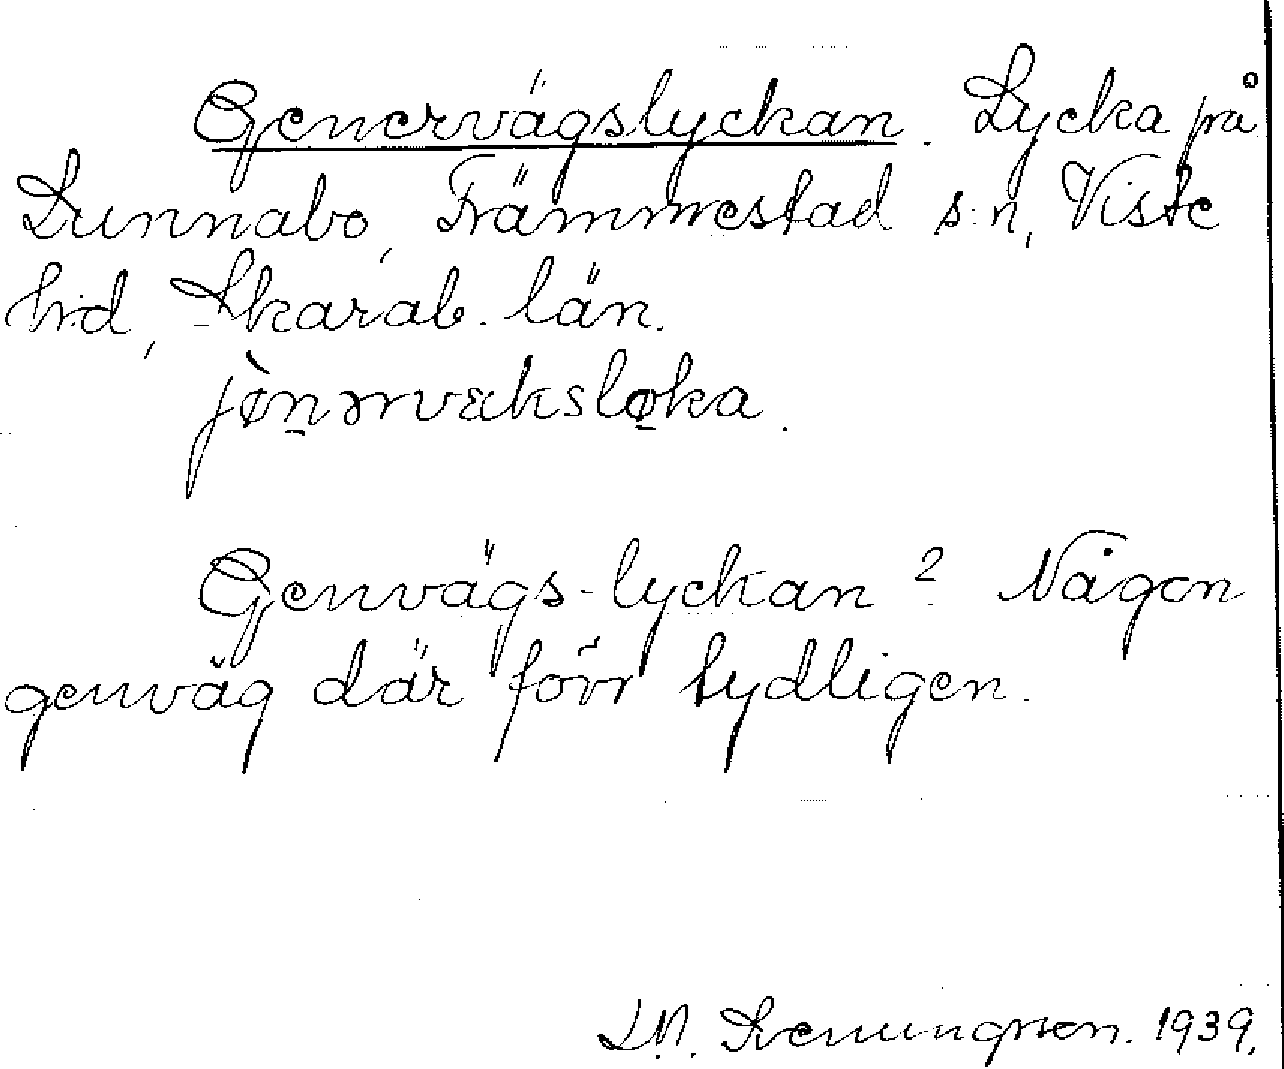 Genervägslyckan. Lycka på
Dunnabo, Främmestad s:n, Viste
hd, Skarab. län.
jø̀nərvæksløka.
Genvägs-lyckan? Någon
genväg där förr tydligen.
1939.